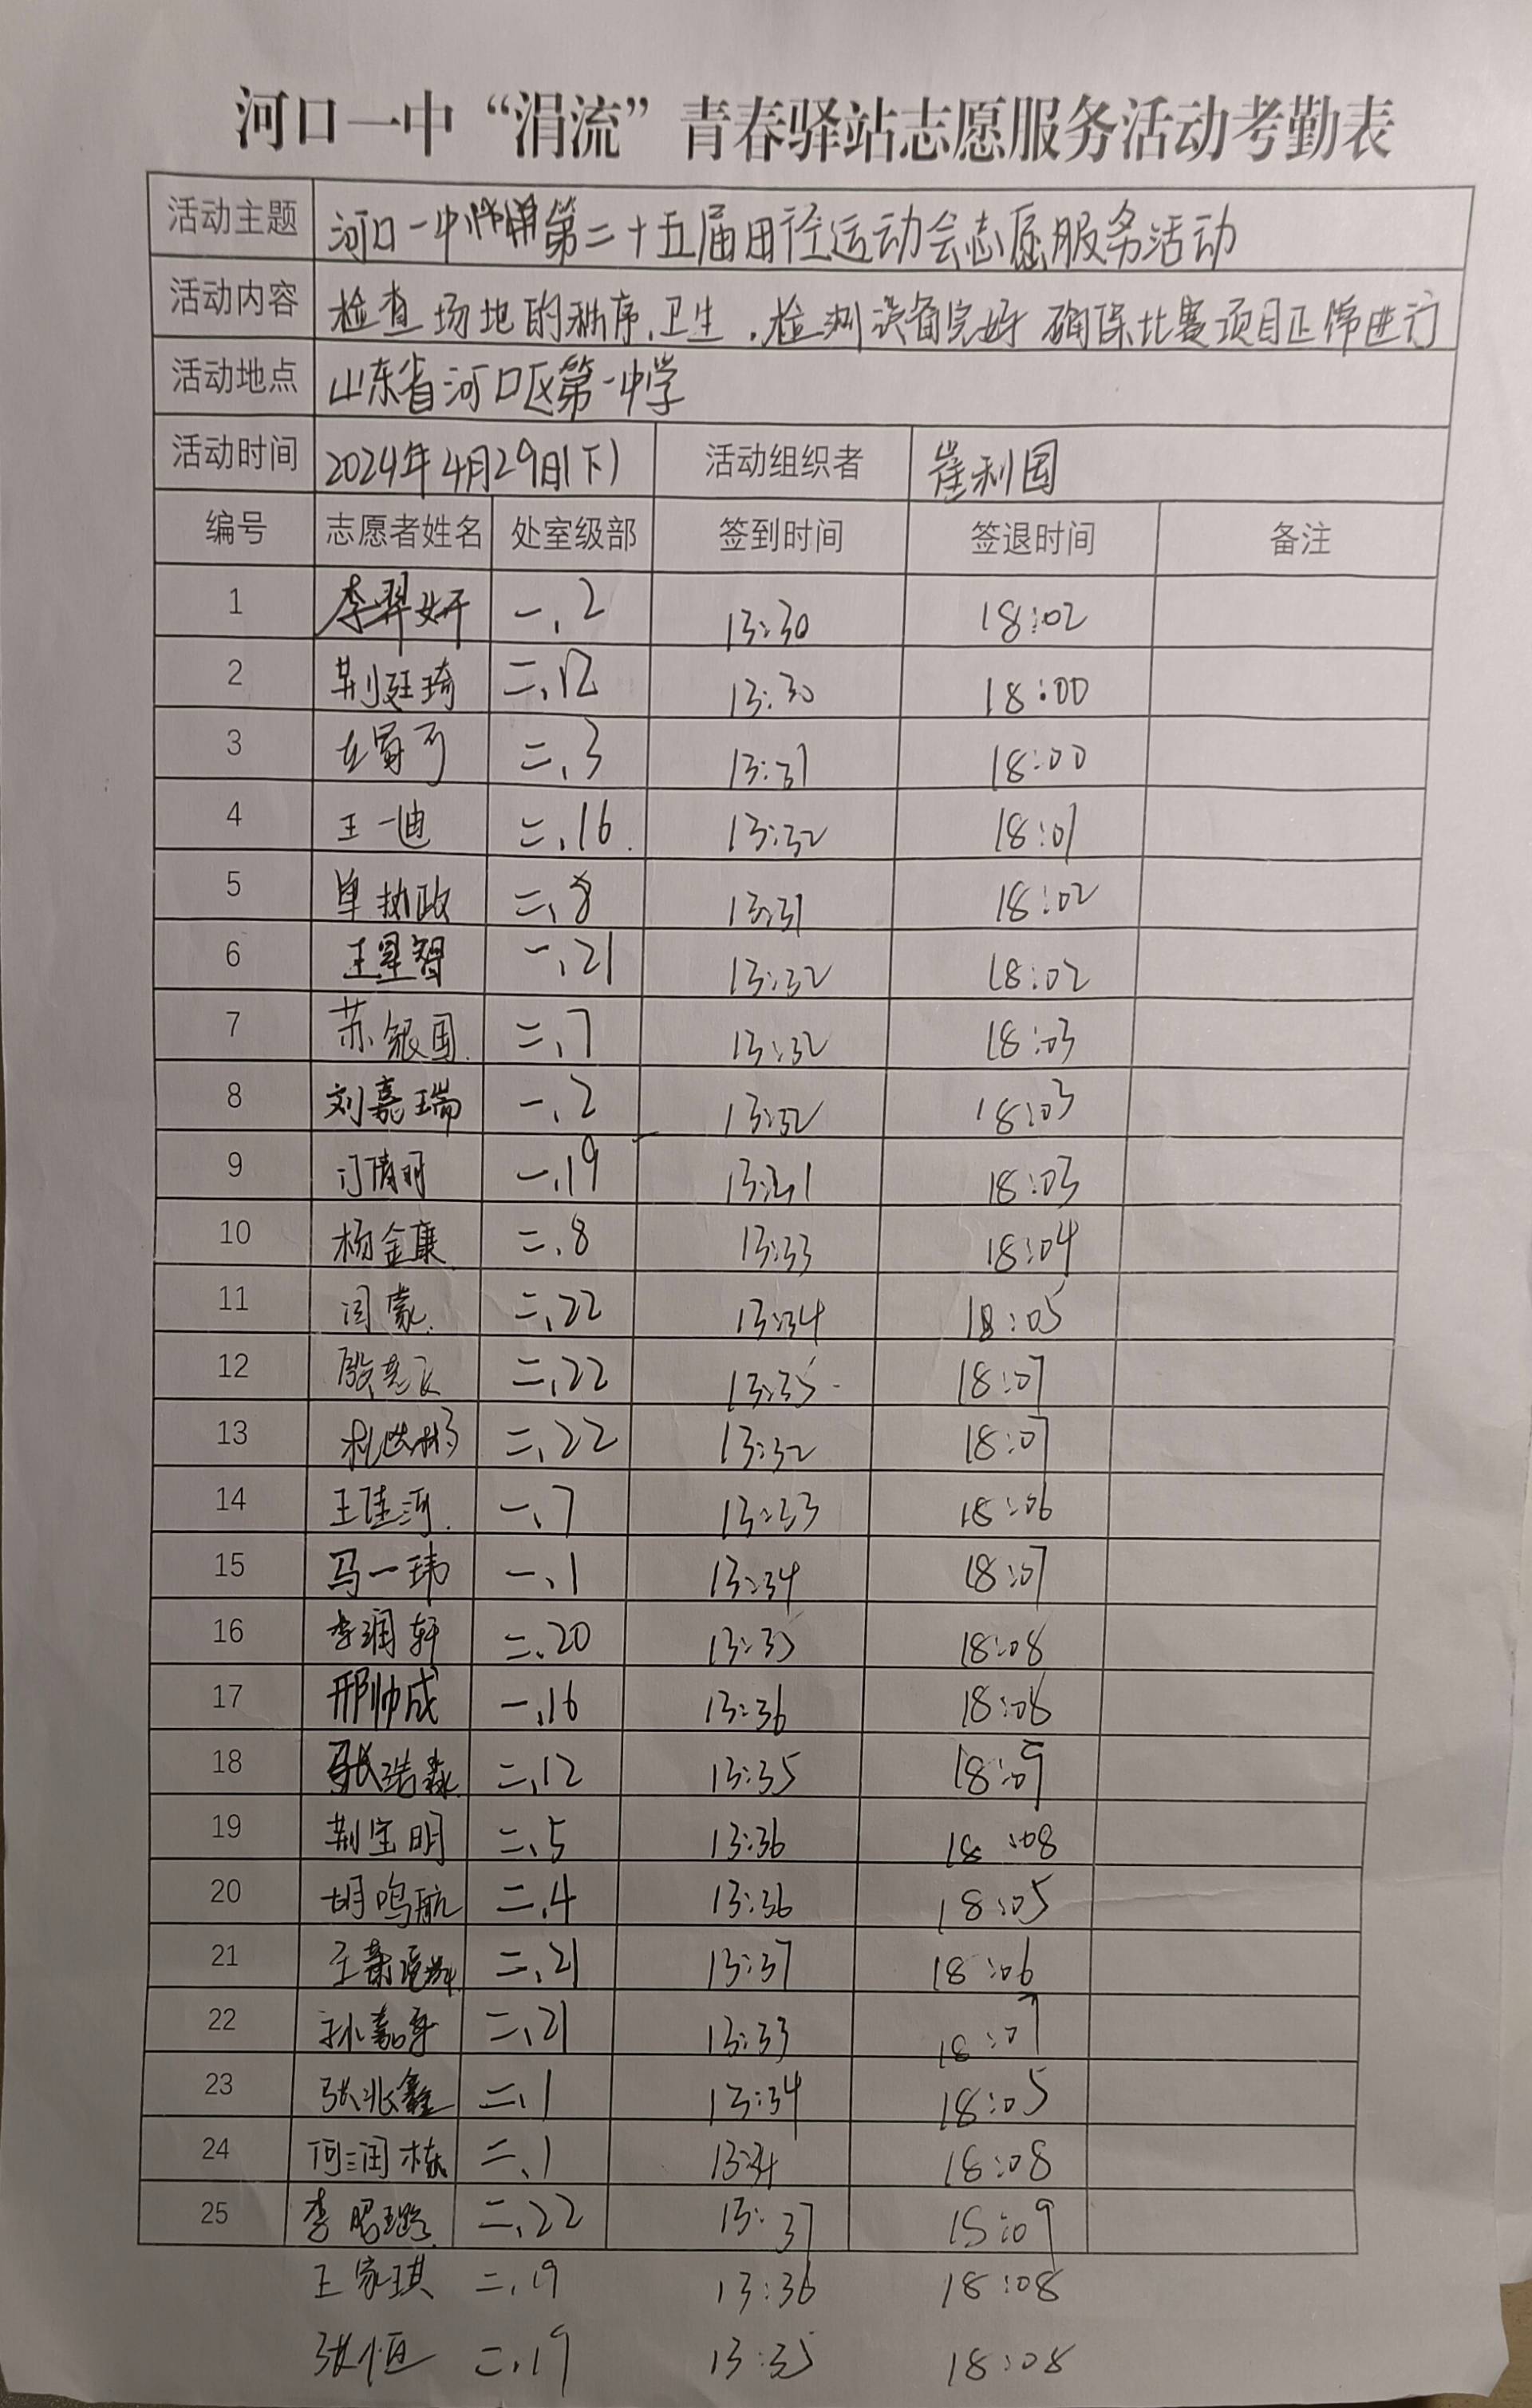 河口一中“涓流”青春驿站志愿服务活动考勤表
活动主题 河口一中 第二十五届田径运动会志愿服务活动
活动内容 检查场地的秩序、卫生，检测设备完好 确保比赛项目正常进行
活动地点 山东省河口区第一中学
活动时间 2024年4月29日(下) 活动组织者 崔利国
编号 志愿者姓名 处室级部 签到时间 签退时间 备注
1 李羿妍 一、2 13:30 18:02
2 荆廷琦 二、12 13:30 18:00
3 二、3 13:31 18:00
4 王一迪 二、16 13:32 18:01
5 单执政 二、8 13:31 18:02
6 王星智 一、21 13:32 18:02
7 苏银国 二、7 13:32 18:03
8 刘嘉瑞 一、2 13:32 18:03
9 一、19 18:03
10 杨金康 二、8 13:33 18:04
11 闫蒙 二、22 13:34 18:05
12 二、22 13:35 18:07
13 二、22 13:32 18:07
14 王佳河 一、7 13:33 18:06
15 马一玮 一、1 13:34 18:07
16 李润轩 二、20 13:35 18:08
17 邢帅成 一、16 13:36 18:08
18 张浩淼 二、12 13:35 18:09
19 荆宝明 二、5 13:36 18:08
20 胡鸣航 二、4 13:36 18:05
21 二、21 13:37 18:06
22 二、21 13:33 18:07
23 张兆鑫 二、1 13:34 18:05
24 何润栋 二、1 13:34 18:08
25 李昭璐 二、22 13:37 18:09
王家琪 二、19 13:36 18:08
张恒 二、19 13:35 18:08